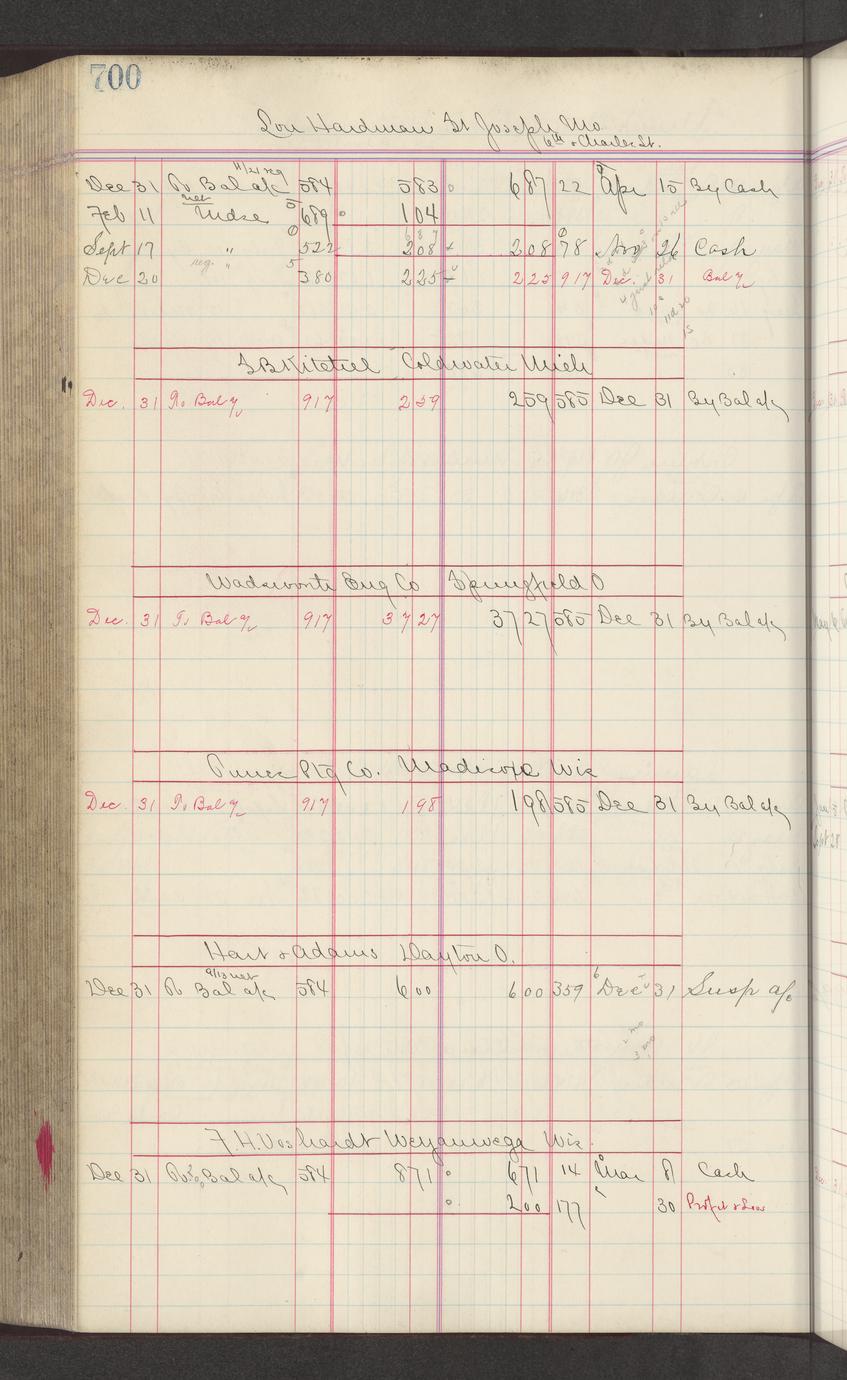 700
Lou Hardman St Joseph Mo
6th & Charles St.
11/21 reg
Dec 31 To Bal a/c 584 583 687 22 Apr 15 By Cash
net
Feb 11 Mdse 689 104
687
Sept 17 " 522 208 208 78 Nov 26 Cash
Dec 20 reg. " 380 225 225 917 Dec. 31 Bal
Coldwater Mich
Dec. 31 To Bal 917 259 259 585 Dec 31 By Bal a/c
Eng Co Springfield O
Dec. 31 To Bal 917 37 27 37 27 585 Dec 31 By Bal a/c
Ptg Co. Madison Wis
Dec. 31 To Bal 917 198 198 585 Dec 31 By Bal a/c
Hart & Adams Dayton O.
9/13 net
Dec 31 To Bal a/c 584 6 00 6 00 359 Dec 31 Susp a/c
F. H. Voshardt Weyauwega Wis.
Dec 31 To Bal a/c 584 871 671 14 Mar 8 Cash
200 177 30 Profit & Loss